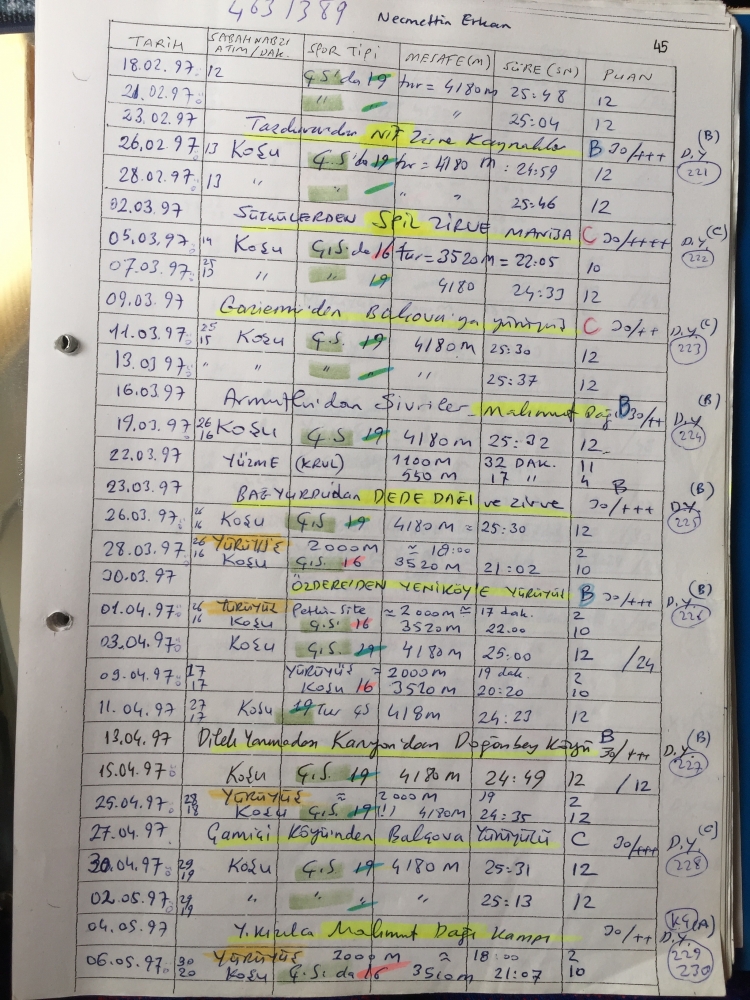 4631389
Necmettin Erkan
45
TARİH SABAH NABZI ATIM/DAK. SPOR TİPİ MESAFE(M) SÜRE(SN) PUAN
18.02.97 12 Ç.S'da 19 tur = 4180m 25:48 12
21.02.97 " " 25:04 12
23.02.97 NİF Zirve Kaynaklar B 30/+++ D.Y. (B) 221
26.02.97 13 Koşu Ç.S'da 19 tur = 4180 m : 24:59 12
28.02.97 13 " " " " 25:46 12
02.03.97 SÜTÇÜLERDEN SPİL ZİRVE MANİSA C 30/++++ D.Y. (C) 222
05.03.97 14 Koşu Ç.S. da 16 tur = 3520m = 22:05 10
07.03.97 25 13 " " 19 4180 24:33 12
09.03.97 Gaziemir'den Balçova'ya yürüyüş C 30/++ D.Y. (C) 223
11.03.97 25 15 Koşu Ç.S. 19 4180m 25:30 12
13.03.97 " " " " 25:37 12
16.03.97 Armutlu'dan Sivriler Mahmut Dağı B 30/++ D.Y. (B) 224
19.03.97 26 16 Koşu Ç.S 19 4180m 25:32 12
22.03.97 YÜZME (KRUL) 1100m 32 DAK. 11
550m 17 " 4
23.03.97 BAĞYURDU'dan DEDE DAĞI ve zirve B 30/+++ D.Y. (B) 225
26.03.97 26 16 Koşu Ç.S 19 4180m = 25:30 12
28.03.97 26 16 YÜRÜYÜŞ 2000m ≈ 18:00 2
Koşu Ç.S. 16 3520m 21:02 10
30.03.97 ÖZDERE'DEN YENİKÖY'E YÜRÜYÜŞ B 30/+++ D.Y. (B) 226
01.04.97 26 16 YÜRÜYÜŞ site ≈ 2000m ≈ 17 dak. 2
Koşu Ç.S. 16 3520m 22.00 10
03.04.97 Koşu Ç.S. 19 4180m 25:00 12 /24
09.04.97 17 17 YÜRÜYÜŞ = 2000m 19 dak. 2
Koşu 16 3520m 20:20 10
11.04.97 27 17 Koşu 19 Tur ÇS 418m 24:23 12
13.04.97 Dilek Yarımadası Kanyon'dan Doğanbey Köyü B 30/+++ D.Y. (B) 227
15.04.97 Koşu Ç.S. 19 4180m 24:49 12 /12
25.04.97 28 18 YÜRÜYÜŞ ≈ 2000m 19 2
Koşu Ç.S. 19 (!) 4180m 24:35 12
27.04.97 Çamiçi Köyünden Balçova Yürüyüşü C 30/+++ D.Y. (C) 228
30.04.97 29 19 Koşu Ç.S 19 4180m 25:31 12
02.05.97 29 19 " " " " 25:13 12
04.05.97 Y.kızılca Mahmut Dağı Kampı 30/++ D.Y. K4 (A) 229
06.05.97 30 20 YÜRÜYÜŞ 2000m ≈ 18:00 2 230
Koşu Ç.S. da 16 3510m 21:07 10